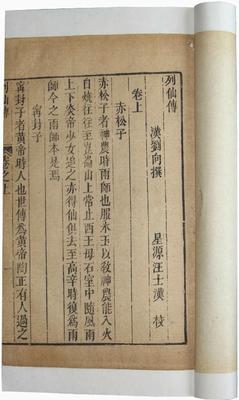 列仙傳
漢劉向撰　星源汪士漢校
卷上
赤松子
赤松子者神農時雨師也服水玉以敎神農能入火
自燒往往至崑崙山上常止西王母石室中隨風雨
上下炎帝少女追之亦得仙俱去至高辛時復爲雨
師今之雨師本是焉
甯封子
甯封子者黃帝時人也世傳爲黃帝陶正有人過之
列仙傳　卷之上